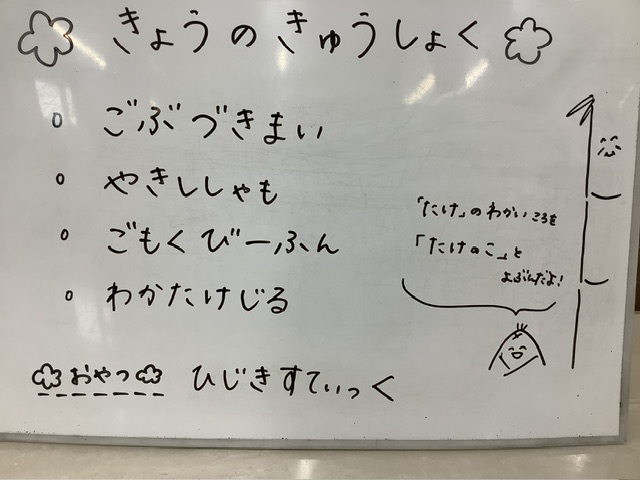 きょうのきゅうしょく
ごぶづきまい
やきししゃも
ごもくびーふん
わかたけじる
「たけ」のわかいころを
「たけのこ」と
よぶんだよ！
おやつ ひじきすてぃっく